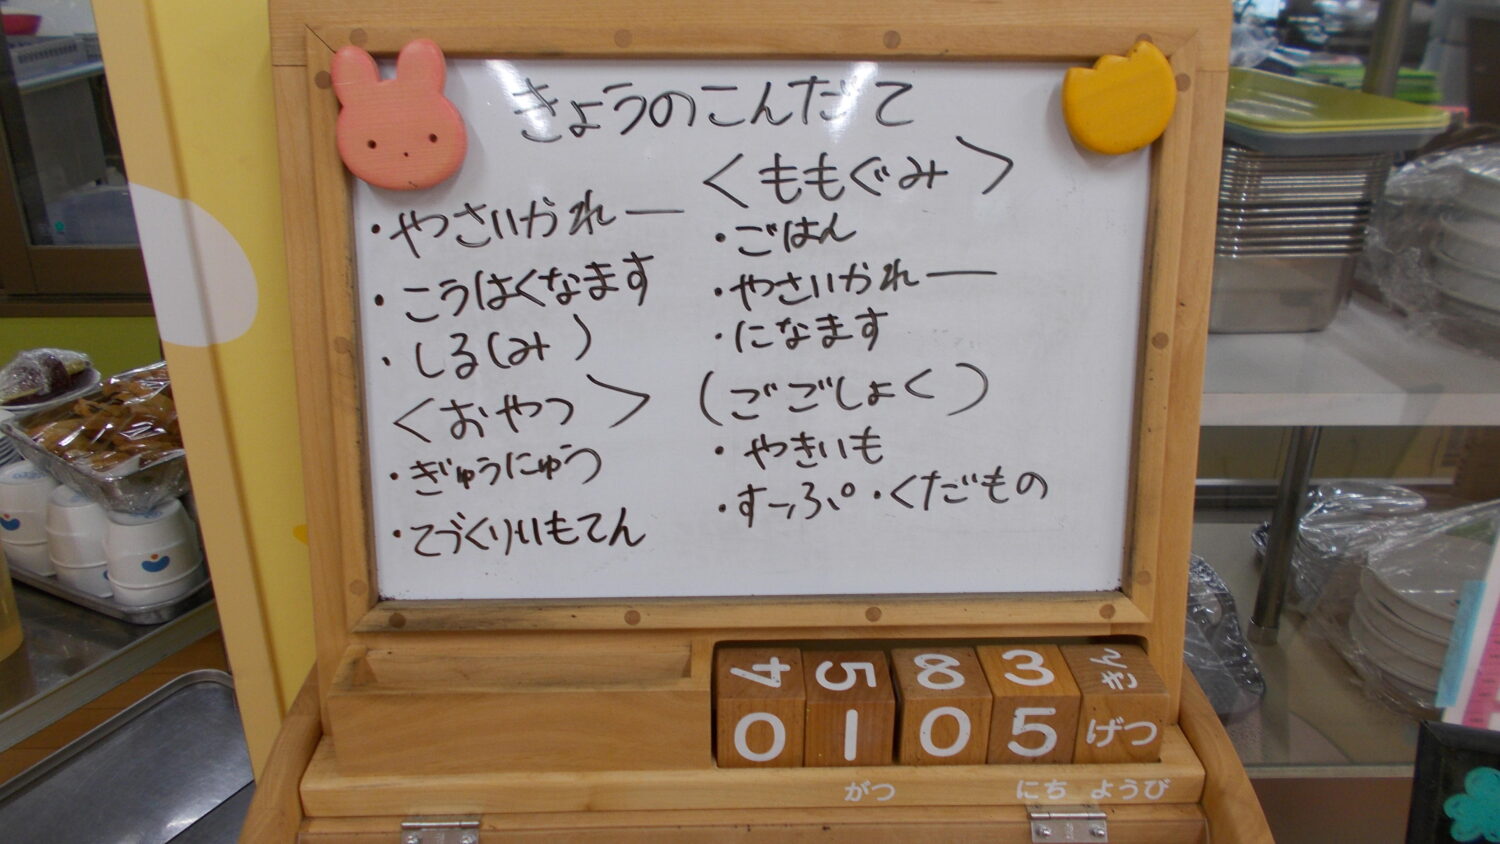 きょうのこんだて
・やさいかれー
・こうはくなます
・しる(みそ)
＜おやつ＞
・ぎゅうにゅう
・てづくりいもてん
＜ももぐみ＞
・ごはん
・やさいかれー
・になます
(ごごしょく)
・やきいも
・すーぷ・くだもの
4 5 8 3 きん
0 1 0 5 げつ
がつ にち ようび